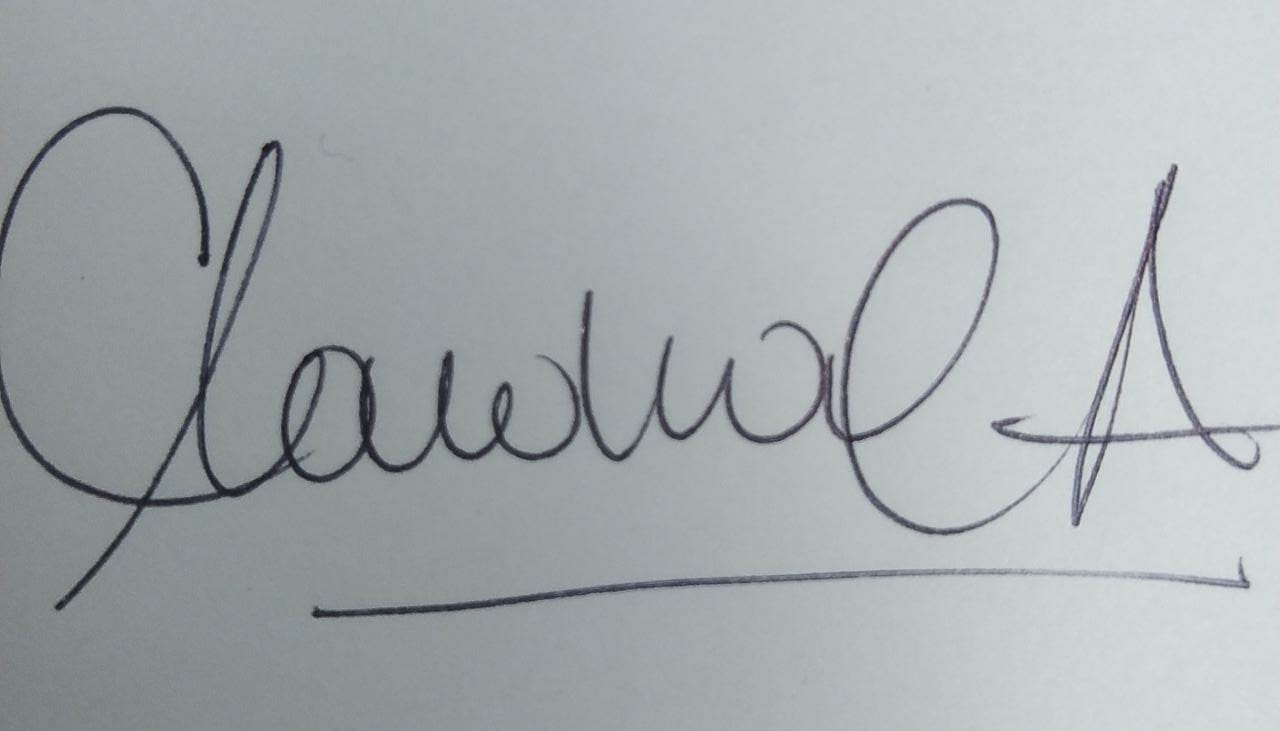 Claudia C. A